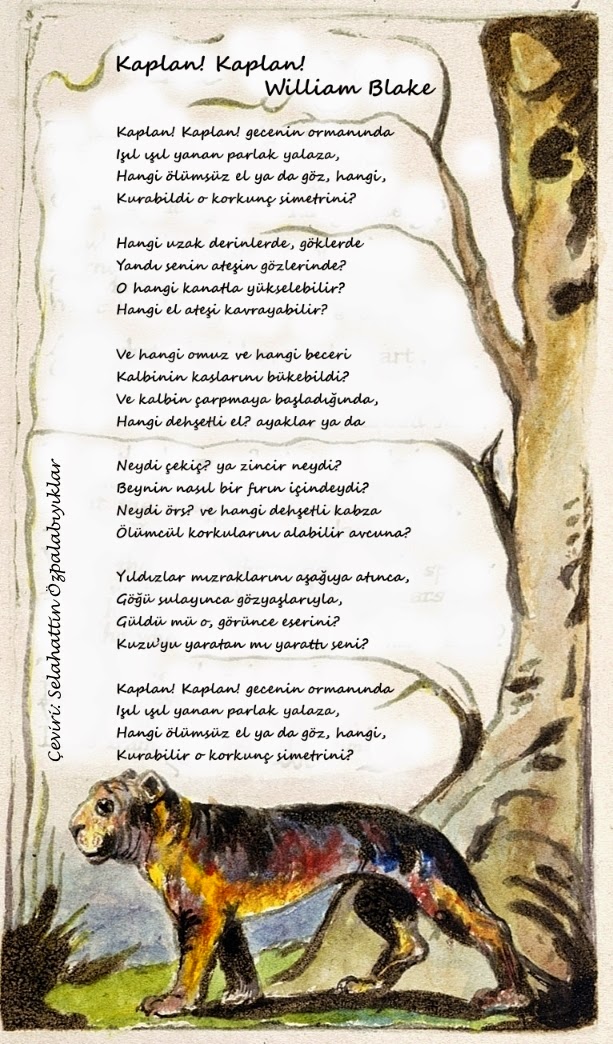 Kaplan! Kaplan!
William Blake
Kaplan! Kaplan! gecenin ormanında
Işıl ışıl yanan parlak yalaza,
Hangi ölümsüz el ya da göz, hangi,
Kurabildi o korkunç simetrini?
Hangi uzak derinlerde, göklerde
Yandı senin ateşin gözlerinde?
O hangi kanatla yükselebilir?
Hangi el ateşi kavrayabilir?
Ve hangi omuz ve hangi beceri
Kalbinin kaslarını bükebildi?
Ve kalbin çarpmaya başladığında,
Hangi dehşetli el? ayaklar ya da
Neydi çekiç? ya zincir neydi?
Beynin nasıl bir fırın içindeydi?
Neydi örs? ve hangi dehşetli kabza
Ölümcül korkularını alabilir avcuna?
Yıldızlar mızraklarını aşağıya atınca,
Göğü sulayınca gözyaşlarıyla,
Güldü mü o, görünce eserini?
Kuzu'yu yaratan mı yarattı seni?
Kaplan! Kaplan! gecenin ormanında
Işıl ışıl yanan parlak yalaza,
Hangi ölümsüz el ya da göz, hangi,
Kurabilir o korkunç simetrini?
Çeviri: Selahattin Özpalabıyıklar